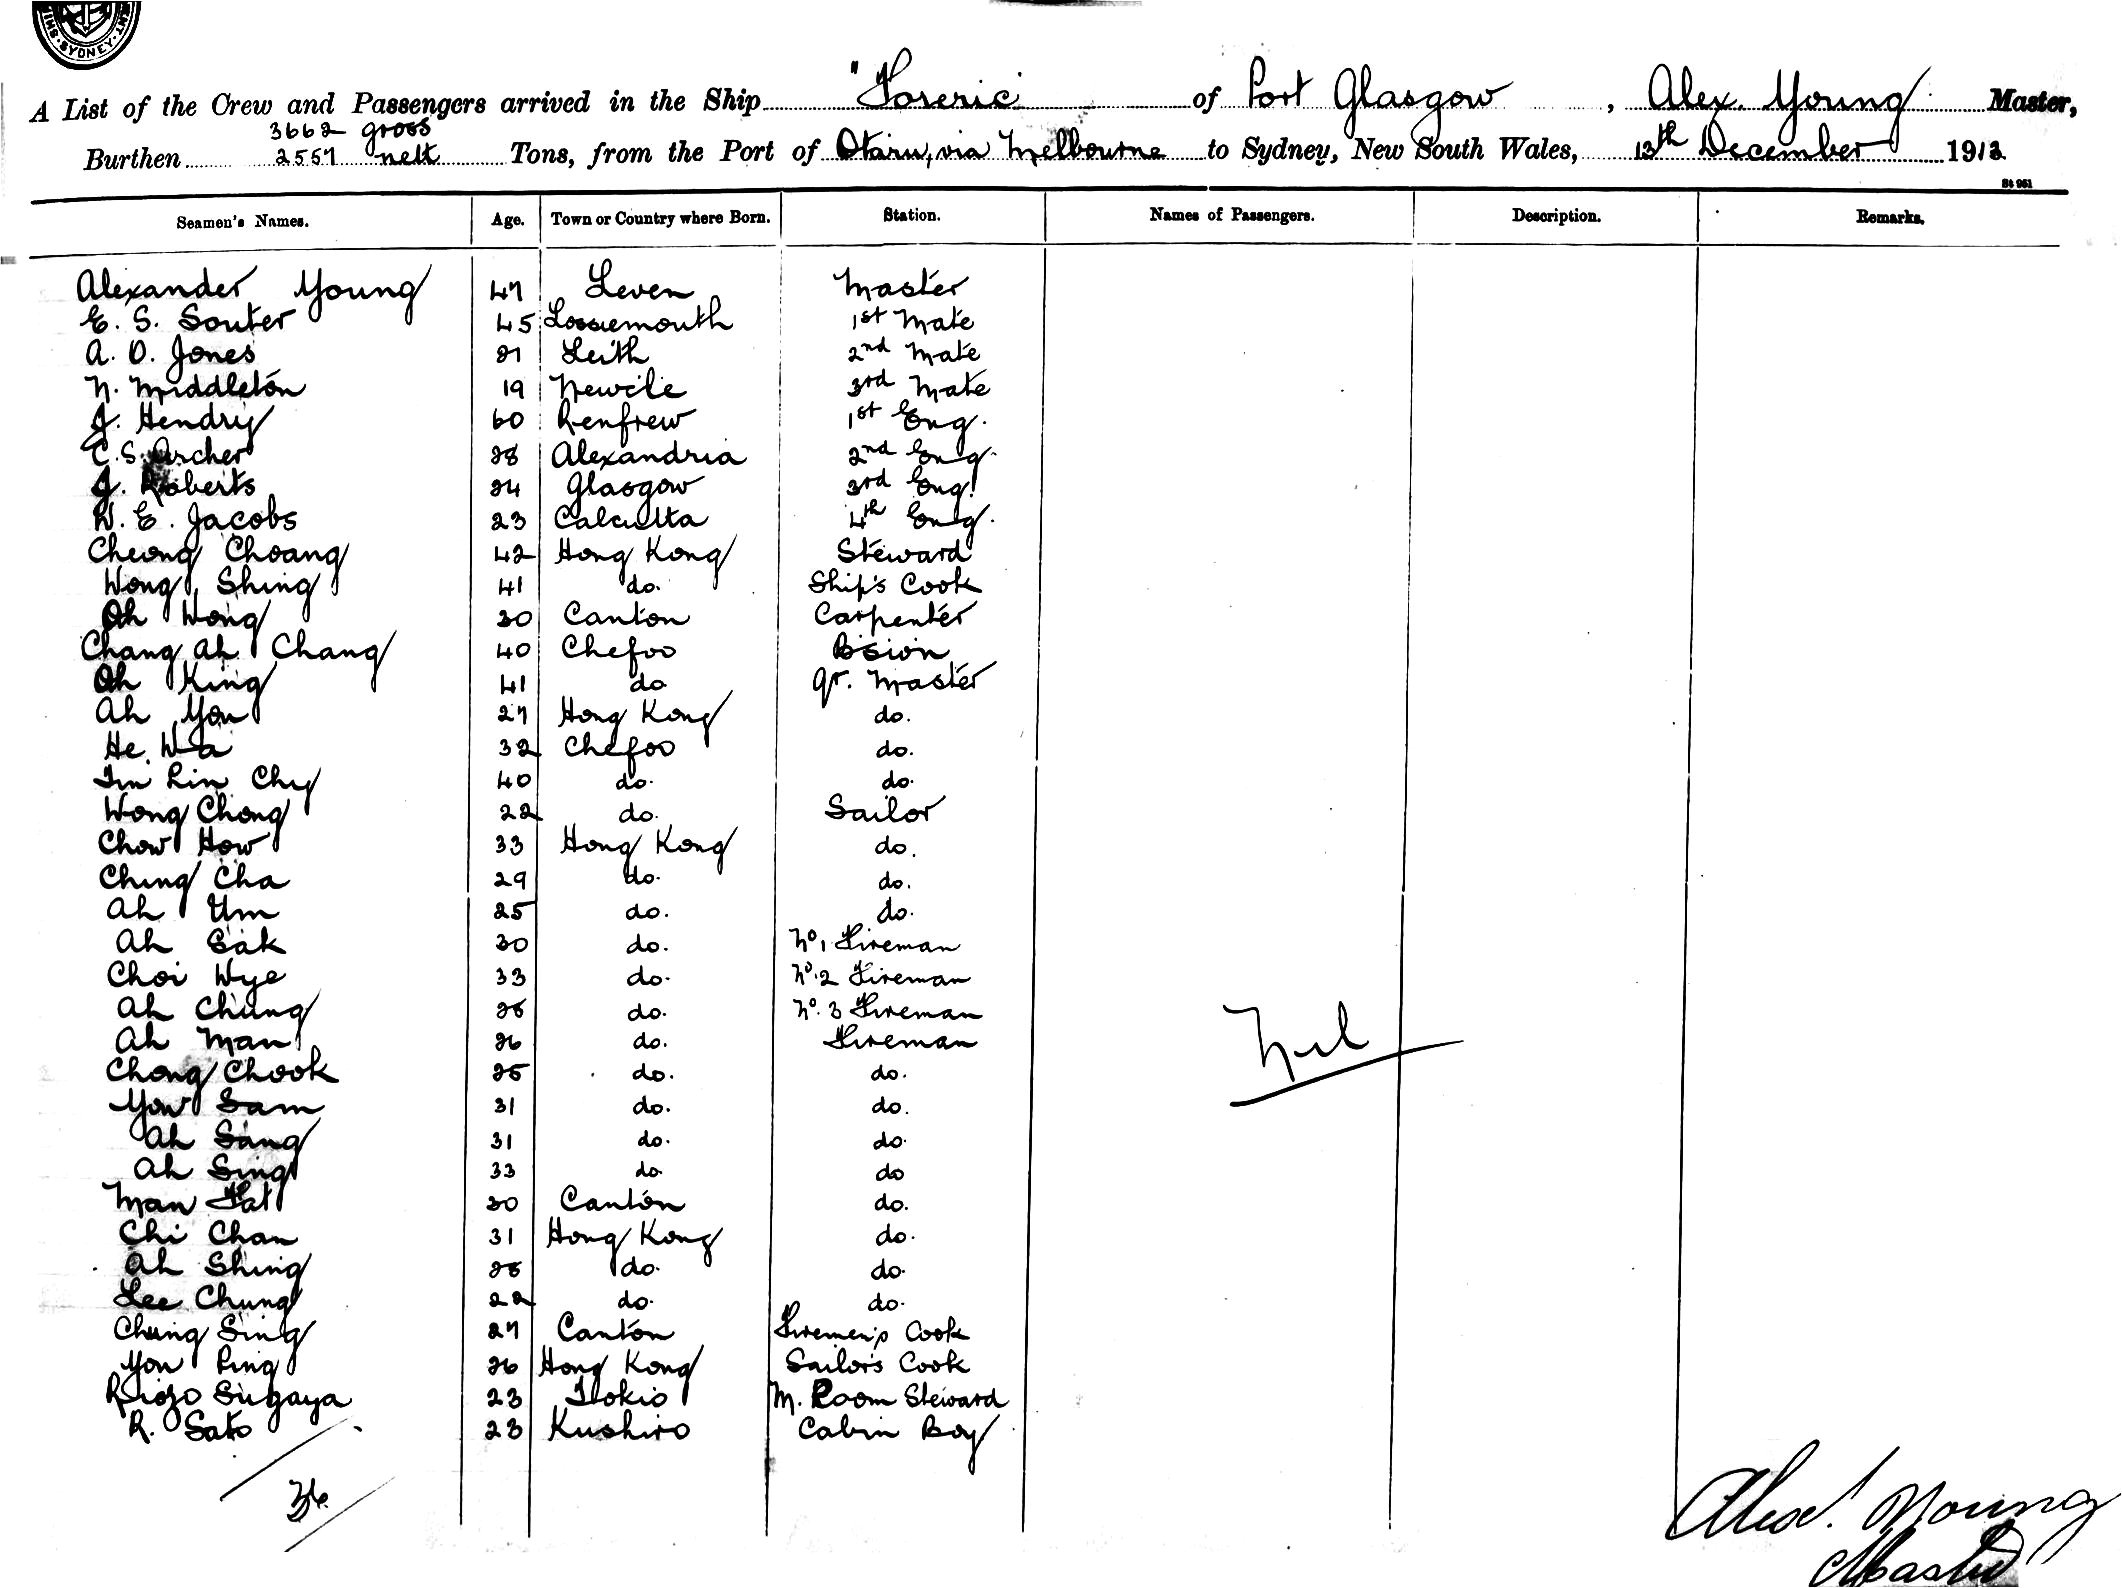 SYDNEY
A List of the Crew and Passengers arrived in the Ship "Foreric" of Port Glasgow, Alex. Young Master,
3662 gross
Burthen 2557 nett Tons, from the Port of Otaru, via Melbourne to Sydney, New South Wales, 13th December 1913
St 961
Seamen's Names. Age. Town or Country where Born. Station. Names of Passengers. Description. Remarks.
Alexander Young 47 Leven Master
E. S. Souter 45 Lossiemouth 1st Mate
A. O. Jones 21 Leith 2nd Mate
N. Middleton 19 Newcle 3rd Mate
J. Hendry 60 Renfrew 1st Eng.
C. S. Archer 28 Alexandria 2nd Eng.
J. Roberts 24 Glasgow 3rd Eng.
W. E. Jacobs 23 Calcutta 4th Eng.
Cheong Choang 42 Hong Kong Steward
Wong Shing 41 do. Ship's Cook
Ah Wong 30 Canton Carpenter
Chang Ah Chang 40 Chefoo
Ah King 41 do Qr. Master
Ah You 27 Hong Kong do.
He Wa 32 Chefoo do.
Lin Chy 40 do. do.
Wong Chong 22 do. Sailor
Chow How 33 Hong Kong do.
Ching Cha 29 do. do.
Ah Um 25 do. do.
Ah Sak 30 do. No 1 Fireman
Choi Wye 33 do. No. 2 Fireman
Ah Chung do. No. 3 Fireman
Ah Man 26 do. Fireman
Chong Chook 25 do. do.
Yow Sam 31 do. do.
Ah Sang 31 do. do.
Ah Sing 33 do do
Man Fat 30 Canton do.
Chi Chan 31 Hong Kong do.
Ah Shing do. do.
Lee Chung 22 do. do.
Chung Sing 27 Canton Firemen's Cook
You Ping 26 Hong Kong Sailor's Cook
Riozo Sugaya 23 Tokio M. Room Steward
R. Sato 23 Kushiro Cabin Boy
Nil
36
Alex. Young
Master